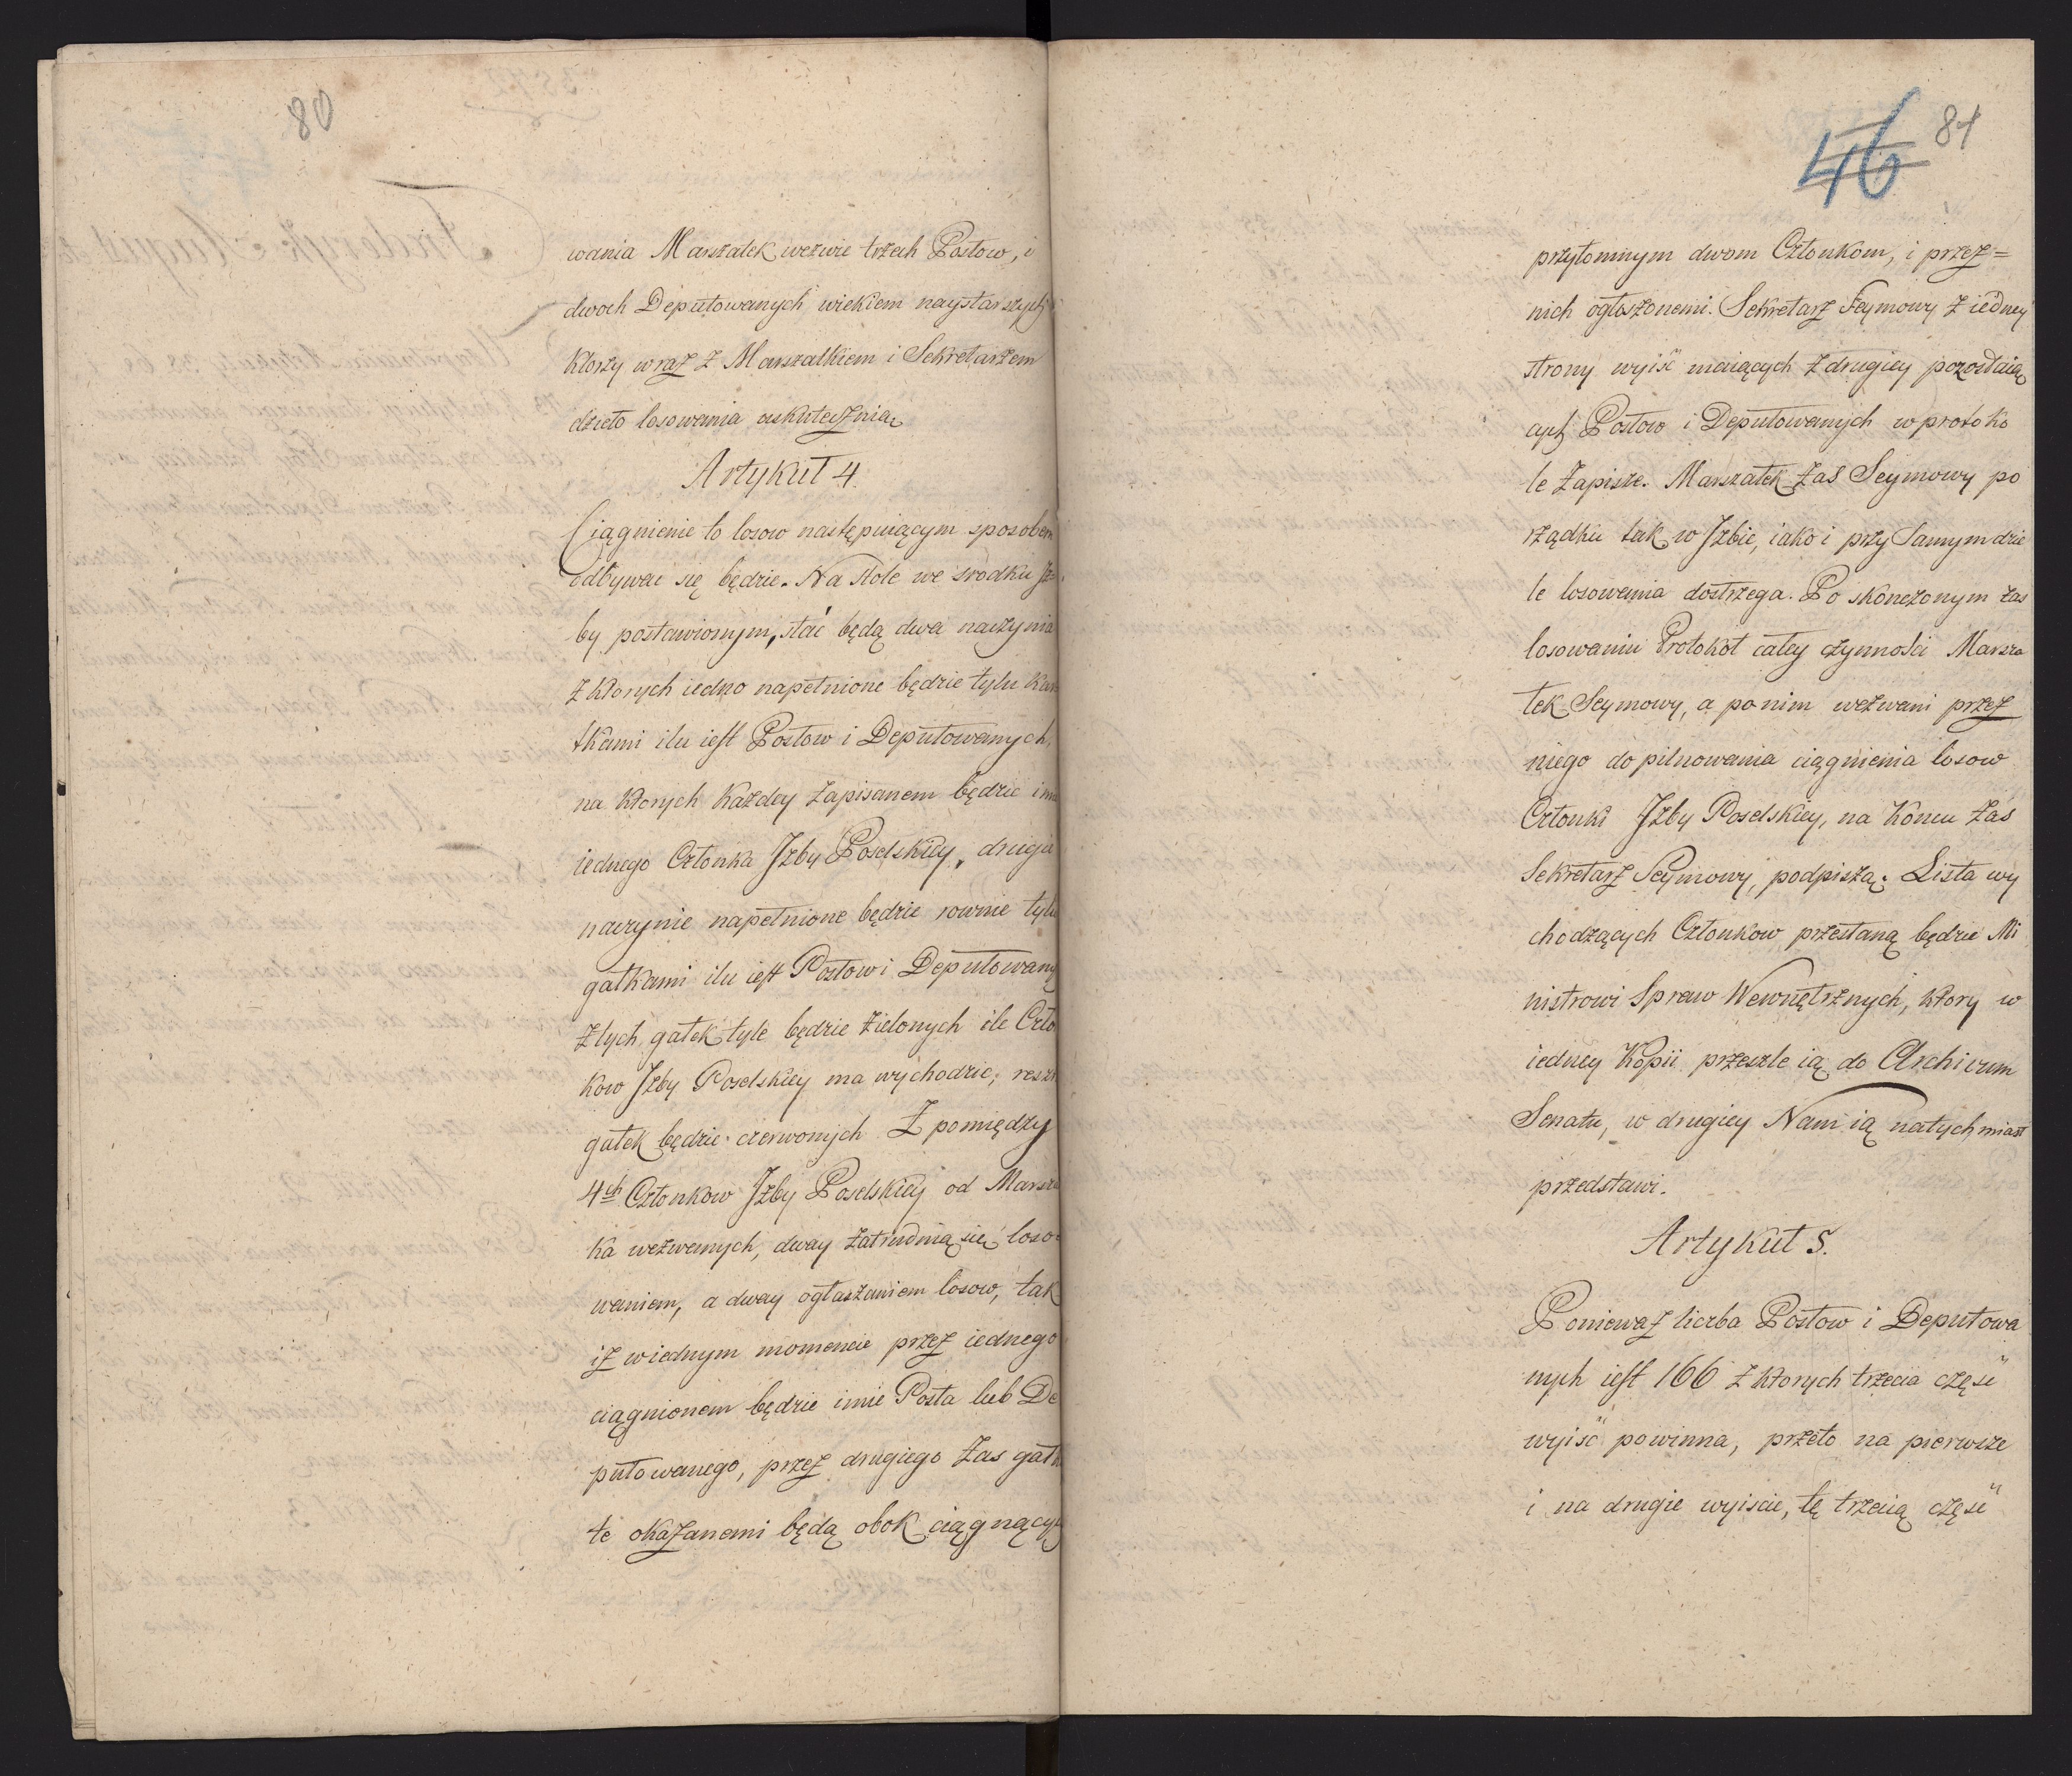 80
wania Marszałek wezwie trzech Posłow, i
dwoch Deputowanych wiekiem naystarszych
ktorzy wraz z Marszałkiem i Sekretarzem
dzieło losowania uskutecznią
Artykuł 4.
Ciągnienie to losow następuiącym sposobem
odbywac się będzie. Na stole we srodku Jz
by postawionym, stać będą dwa naczynia
z ktorych iedno napełnione będzie tylu kar
tkami ilu iest Posłow i Deputowanych,
na ktorych każdey zapisanem będzie imie
iednego Członka Jzby Poselskiey, drugie
naczynie napełnione będzie rownie tylu
gałkami ilu iest Posłow i Deputowany
z tych gałek tyle będzie zielonych ile Człon
kow Jzby Poselskiey ma wychodzic, reszta
gałek będzie czerwonych Z pomiędzy
4ch Członkow Jzby Poselskiey od Marszał
ka wezwanych, dway zatrudnią się loso
waniem, a dway ogłaszaniem losow, tak
iż w iednym momencie przez iednego
ciągnionem będzie imie Posła lub De
putowanego, przez drugiego zas gałk
te okazanemi będą obok ciągnący
46 81
przytomnym dwom Członkom, i przez=
nich ogłoszonemi. Sekretarz Seymowy z iedney
strony wyiść maiących z drugiey pozostaią
cych Posłow i Deputowanych w protoko
le zapisze. Marszałek zaś Seymowy po
rządku tak w Jzbie, iako i przy samym dzie
le losowania dostrzega. Po skonczonym zas
losowaniu Protokoł całey czynności Marsza
łek Seymowy, a po nim wezwani przez
niego do pilnowania ciągnienia losow
Członki Jzby Poselskiey, na koncu zas
Sekretarz Seymowy, podpiszą. Lista wy
chodzących Członkow przesłaną będzie Mi
nistrowi Spraw Wewnętrznych, ktory w
iedney Kopii przeszle ią do Archiwum
Senatu, w drugiey Nam ią natychmiast
przedstawi.
Artykuł 5.
Poniewaz liczba Posłow i Deputowa
nych iest 166 z ktorych trzecia część
wyiść powinna, przeto na pierwsze
i na drugie wyiscie, tę trzecią część